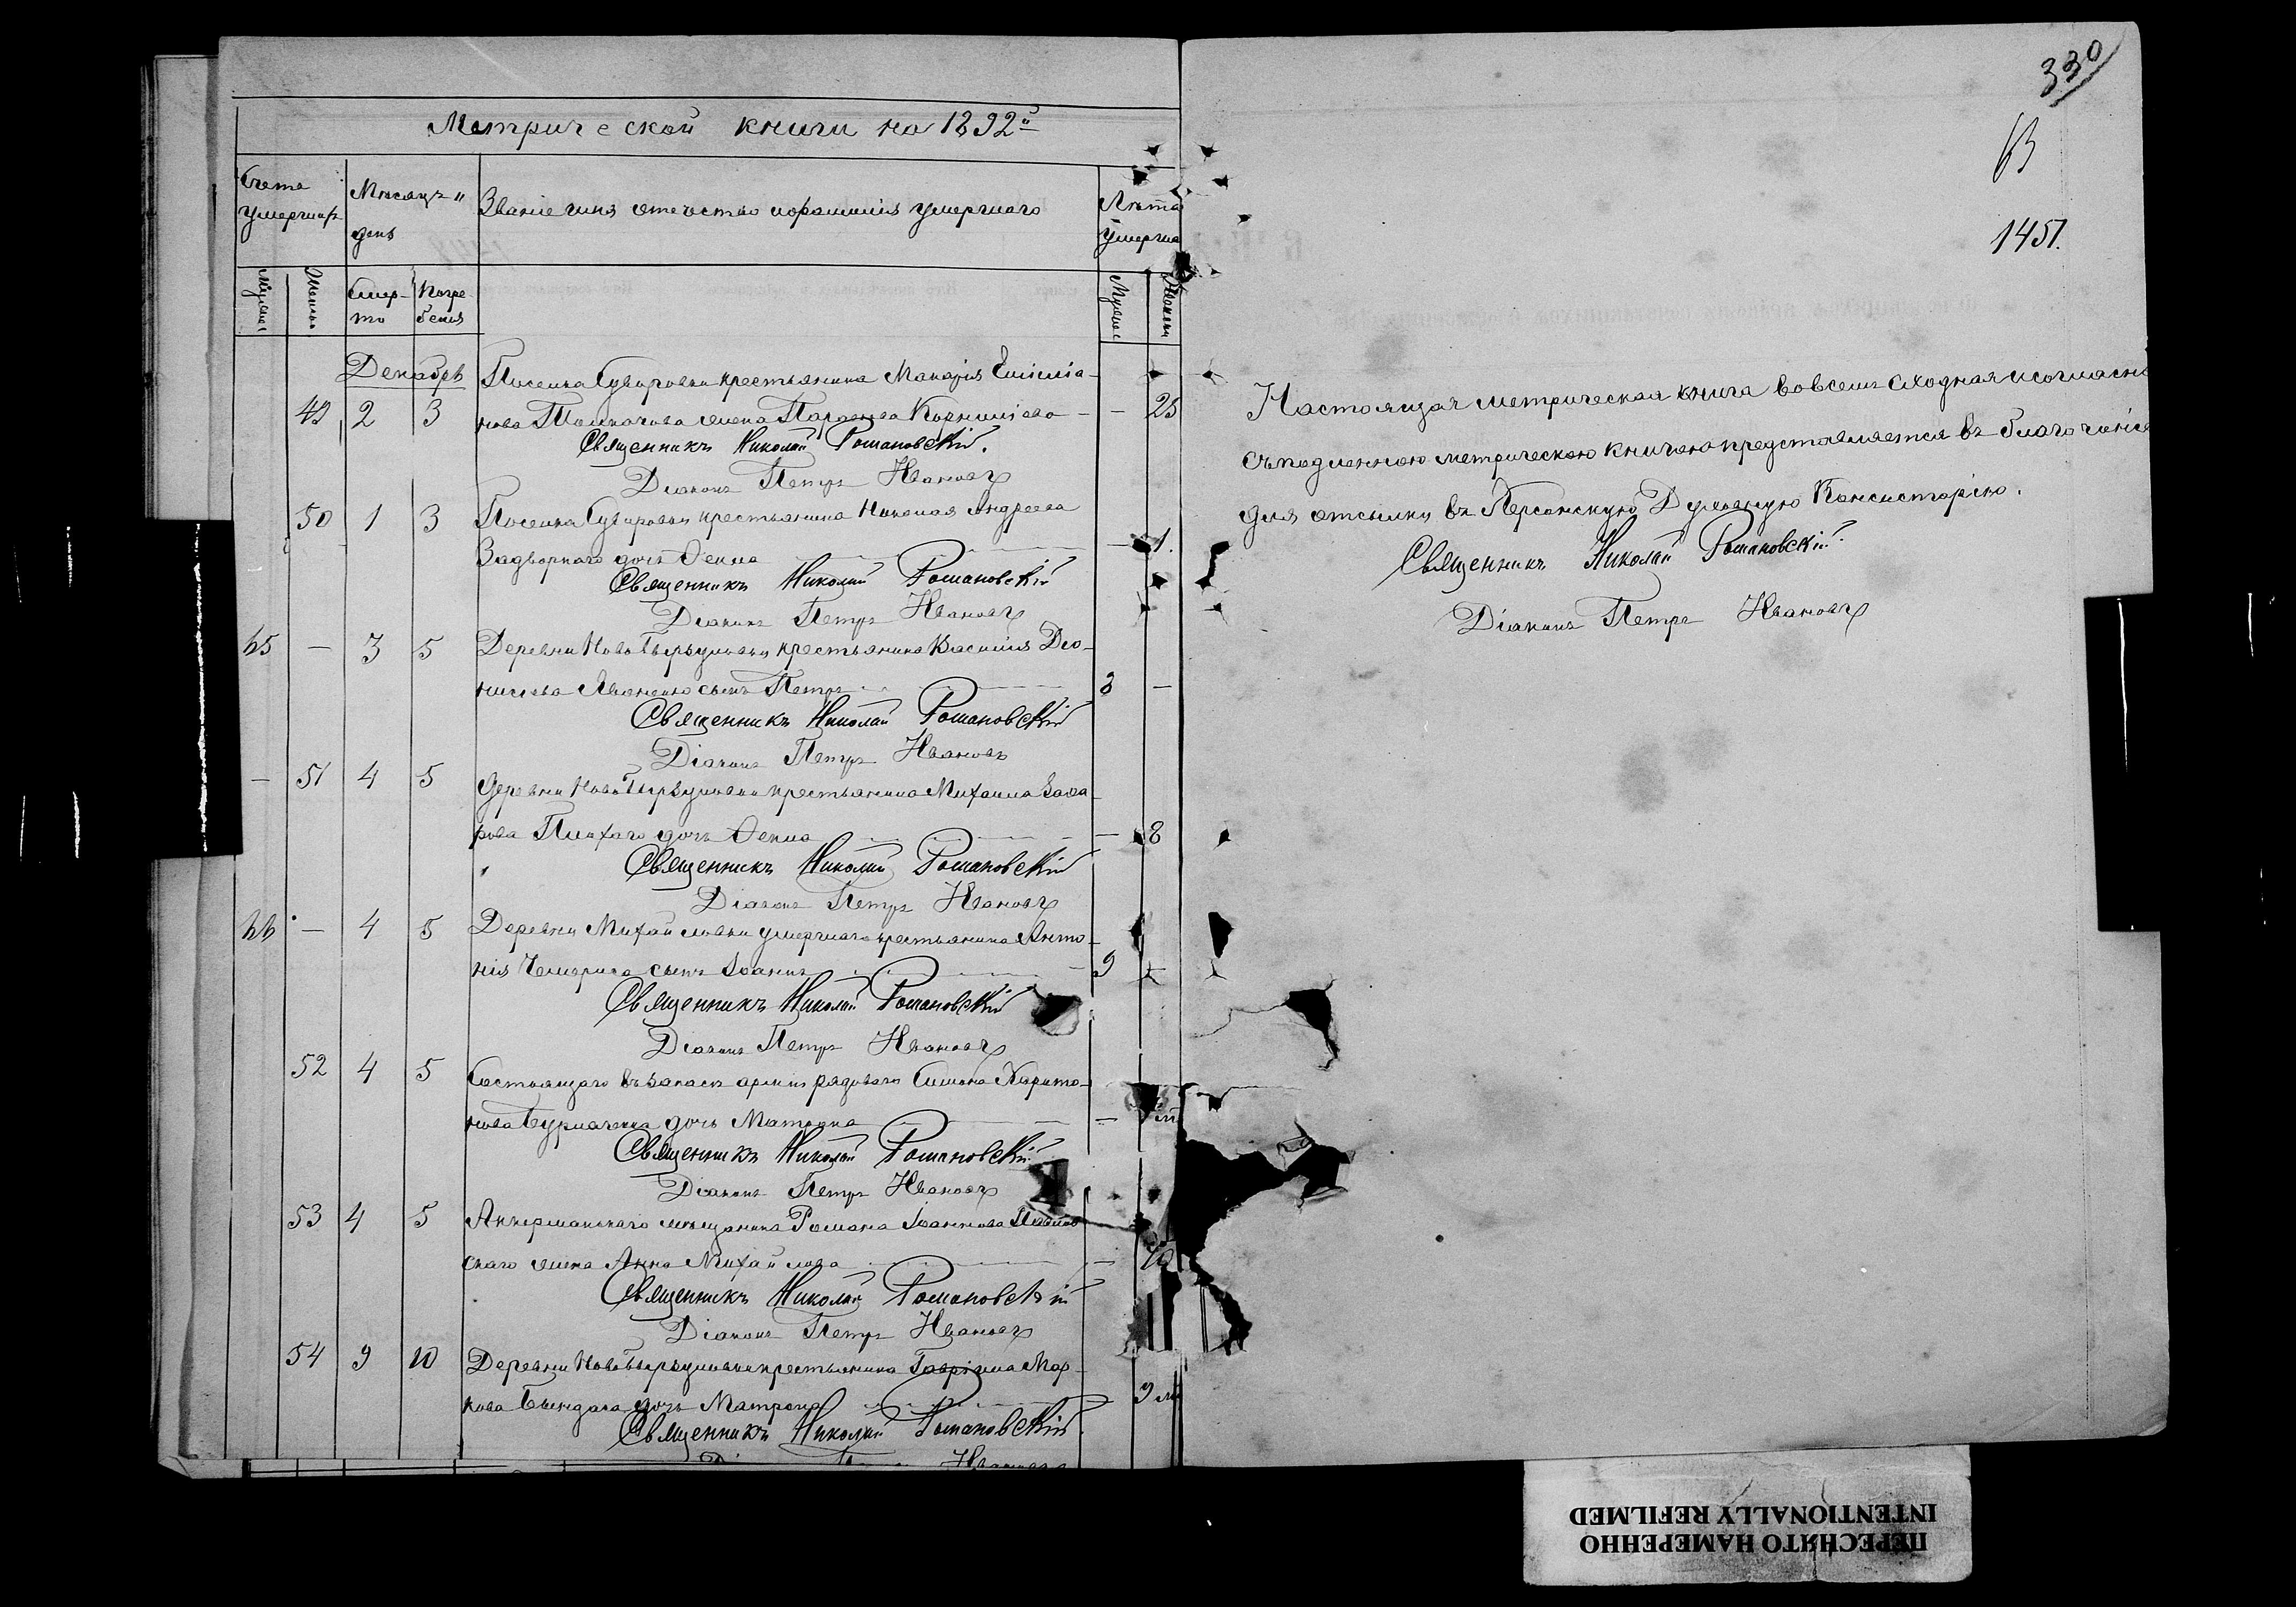 Метрической книги на 1892й
Счетъ умершихъ
Мѣсяцъ и день
Званіе имя отечество и фамилія умершаго
Лѣта умерша
Мужес
Женск
Смер-
ти
Погре
бенія
Мужес
Женск
Декабрь
Поселка Суворовки крестьянина Макарія Емилiа-
49 2 3 нова Толмачова жена Корнилiева — — 25
Священникъ Николай Романовскій.
Діаконъ Петръ Ивановъ
50 1 3 Поселка Суворовки крестьянина Николая Андреева
Задворнаго дочь Ѳекла — 1.
Священникъ Николай Романовскій
Діаконъ Петръ Ивановъ
65 — 3 5 Деревни Ново крестьянина Василія Діо-
нисіева сынъ Петръ 3 —
Священникъ Николай Романовскій
Діаконъ Петръ Ивановъ
— 51 4 5 Деревни Ново крестьянина Михаила Заха-
рова Плахаго дочь Ѳекла — 8
Священникъ Николай Романовскій
Діаконъ Петръ Ивановъ
66 — 4 5 Деревни Михайловки умершаго крестьянина Анто-
нія Чемериса сынъ Іоаннъ 9 —
Священникъ Николай Романовскій
Діаконъ Петръ Ивановъ
52 4 5 Состоящаго въ запасѣ арміи рядоваго Симона Харито-
нова дочь Матрона —
Священникъ Николай Романовскій
Діаконъ Петръ Ивановъ
53 4 5 Аккерманскаго мѣщанина Романа Іоаннова
скаго жена Анна Михайлова —
Священникъ Николай Романовскій
Діаконъ Петръ Ивановъ
54 9 10 Деревни Ново крестьянина Гавріила Мар-
кова дочь Матрона 9 м
Священникъ Николай Романовскій
330
63
1451.
Настоящая метрическая книга во всемъ сходная и согласна
съ подлинною метрическою книгою представляется въ благочиніе
для отсылки въ Херсонскую Духовную Консисторію.
Священникъ Николай Романовскій
Діаконъ Петръ Ивановъ
ПЕРЕСНЯТО НАМЕРЕННО
INTENTIONALLY REFILMED